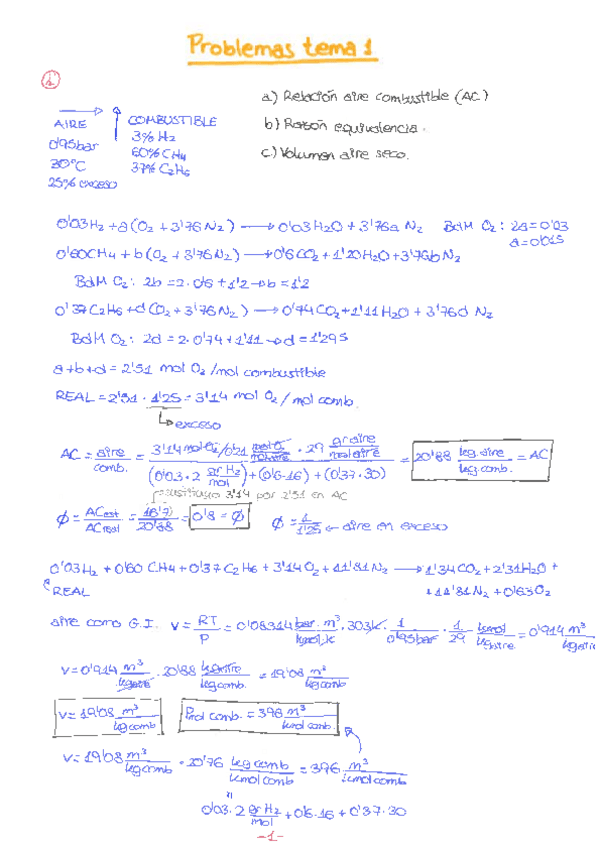 Problemas tema 1
1
a) Relación aire combustible (AC)
b) Razon equivalencia.
c) Volumen aire seco.
AIRE
0'95bar
30°C
25% exceso
COMBUSTIBLE
3% H₂
60% CH₄
37% C₂H₆
0'03H₂ + a(O₂ + 3'76N₂) → 0'03H₂O + 3'76a N₂ BdM O₂: 2a = 0'03
a = 0'015
0'60CH₄ + b(O₂ + 3'76N₂) → 0'6CO₂ + 1'20H₂O + 3'76b N₂
BdM O₂: 2b = 2·0'6 + 1'2 → b = 1'2
0'37C₂H₆ + d(O₂ + 3'76N₂) → 0'74CO₂ + 1'11H₂O + 3'76d N₂
BdM O₂: 2d = 2·0'74 + 1'11 → d = 1'295
a+b+d = 2'51 mol O₂/mol combustible
REAL = 2'51 · 1'25 = 3'14 mol O₂ / mol comb.
↳ exceso
AC = aire/comb. = 3'14 mol O₂/0'21 mol O₂/mol aire · 29 gr aire/mol aire / (0'03·2 gr H₂/mol)+(0'6·16)+(0'37·30) = 20'88 kg aire/kg comb. = AC
sustituyo 3'14 por 2'51 en AC
ϕ = ACest/ACreal = 16'71/20'88 = 0'8 = ϕ ϕ = 1/1'25 ← aire en exceso
0'03H₂ + 0'60CH₄ + 0'37C₂H₆ + 3'14O₂ + 11'81N₂ → 1'34CO₂ + 2'31H₂O +
REAL + 11'81N₂ + 0'63O₂
aire como G.I. v = RT/P = 0'08314 bar·m³/kmol·K · 303K · 1/0'95bar · 1/29 kmol/kg aire = 0'914 m³/kg aire
v = 0'914 m³/kg aire · 20'88 kg aire/kg comb = 19'08 m³/kg comb
v = 19'08 m³/kg comb
Pmol comb. = 396 m³/kmol comb.
v = 19'08 m³/kg comb · 20'76 kg comb/kmol comb = 396 m³/kmol comb
"
0'03·2 gr H₂/mol + 0'6·16 + 0'37·30
-1-